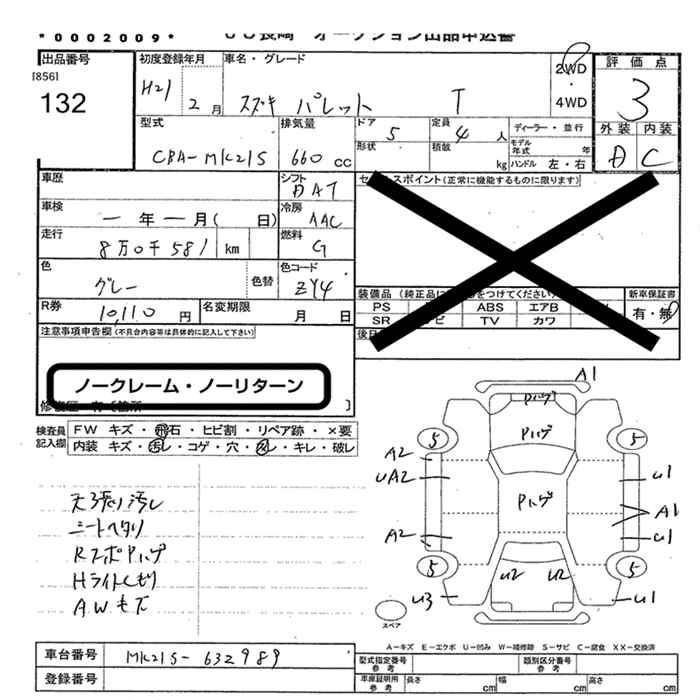 *0002009*
JU長崎 オークション出品申込書
出品番号
[856]
132
初度登録年月
H21 2月
車名・グレード
スズキ パレット T
2WD
・
4WD
評価点
3
型式
CBA-MK21S
排気量
660 cc
ドア
5
定員
4人
形状
積載
kg
ディーラー・並行
モデル年式
年
ハンドル 左・右
外装 内装
D C
車歴
シフト
DAT
車検
一年一月( 日)
冷房
AAC
走行
8万0千581 km
燃料
G
色
グレー
色替
色コード
ZY4
R券
10,110円
名変期限
月 日
セールスポイント(正常に機能するものに限ります)
装備品
PS
ABS
エアB
SR
TV
カワ
新車保証書
有・無
後日
注意事項申告欄(不具合内容等は具体的に記入して下さい)
ノークレーム・ノーリターン
検査員記入欄
FW キズ・飛石・ヒビ割・リペア跡・×要
内装 キズ・汚レ・コゲ・穴・スレ・キレ・破レ
天張り汚レ
シートヘタリ
RスポPハゲ
Hライトくもり
AWキズ
A1
Pハゲ
Pハゲ
Pハゲ
5 5
A2
UA2
U1
A1
A2
U1
5 5
U2 U2
U3
U1
スペア
A-キズ E-エクボ U-凹み W-補修跡 S-サビ C-腐食 XX-交換済
車台番号
MK21S-632989
登録番号
型式指定番号
参考
類別区分番号
参考
車庫証明用
参考
長さ
cm
幅
cm
高さ
cm